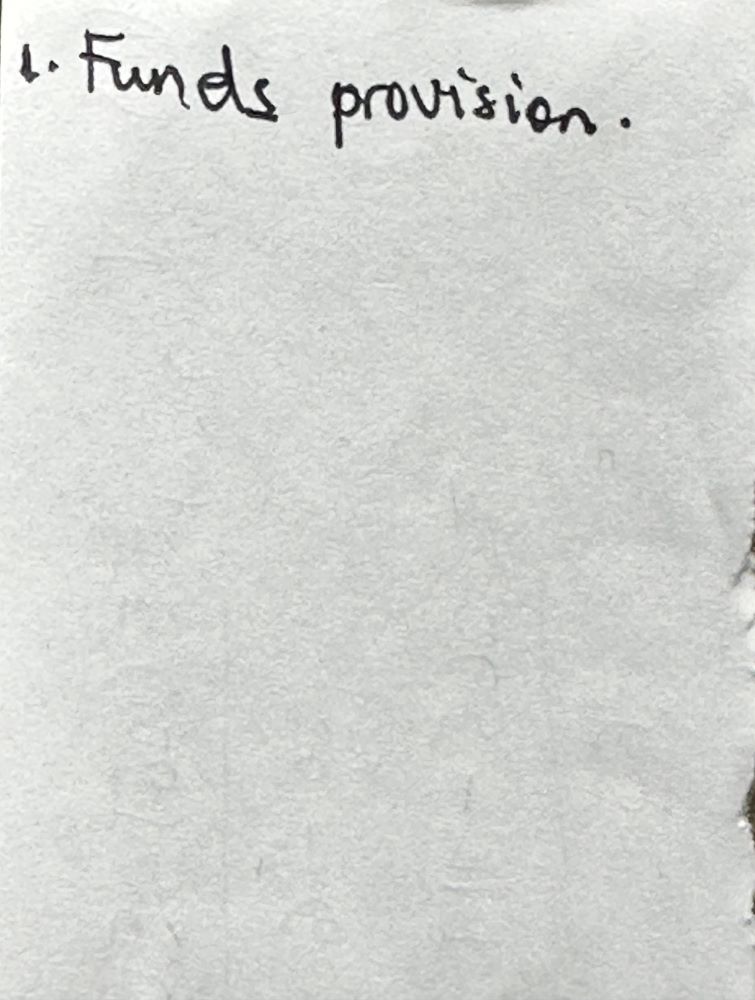 1. Funds provision.